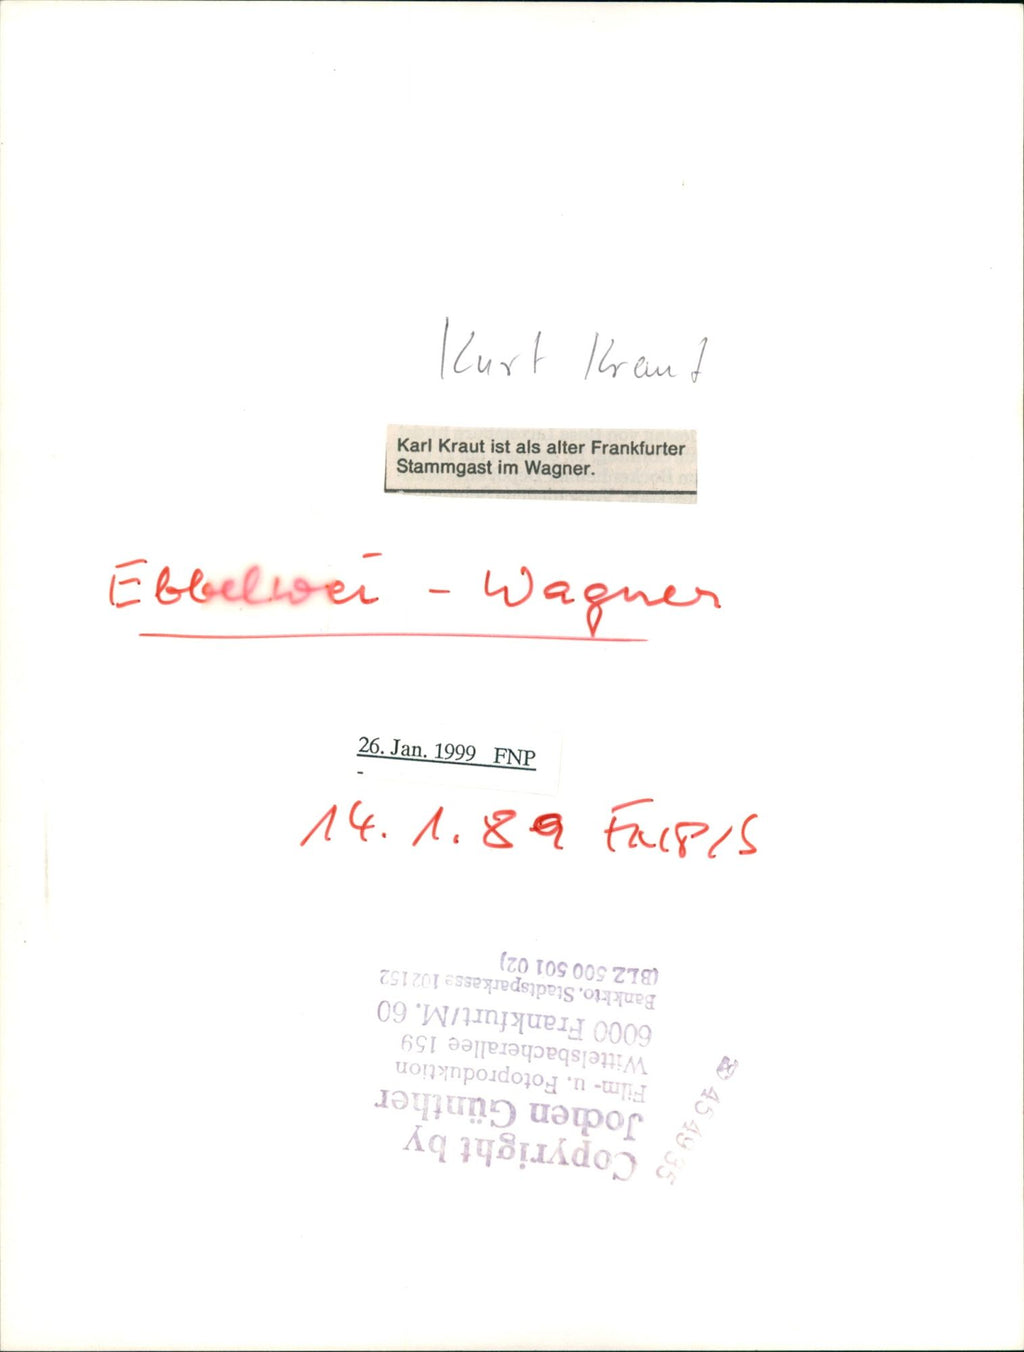 Kurt Kraut
Karl Kraut ist als alter Frankfurter
Stammgast im Wagner.
Ebbelwei - Wagner
26. Jan. 1999 FNP
-
14. 1. 89
Copyright by
Jochen Günther
Film- u. Fotoproduktion
Wittelsbacherallee 159
6000 Frankfurt/M. 60
Bankkto. Stadtsparkasse 102152
(BLZ 500 501 02)
☎ 45 49 35